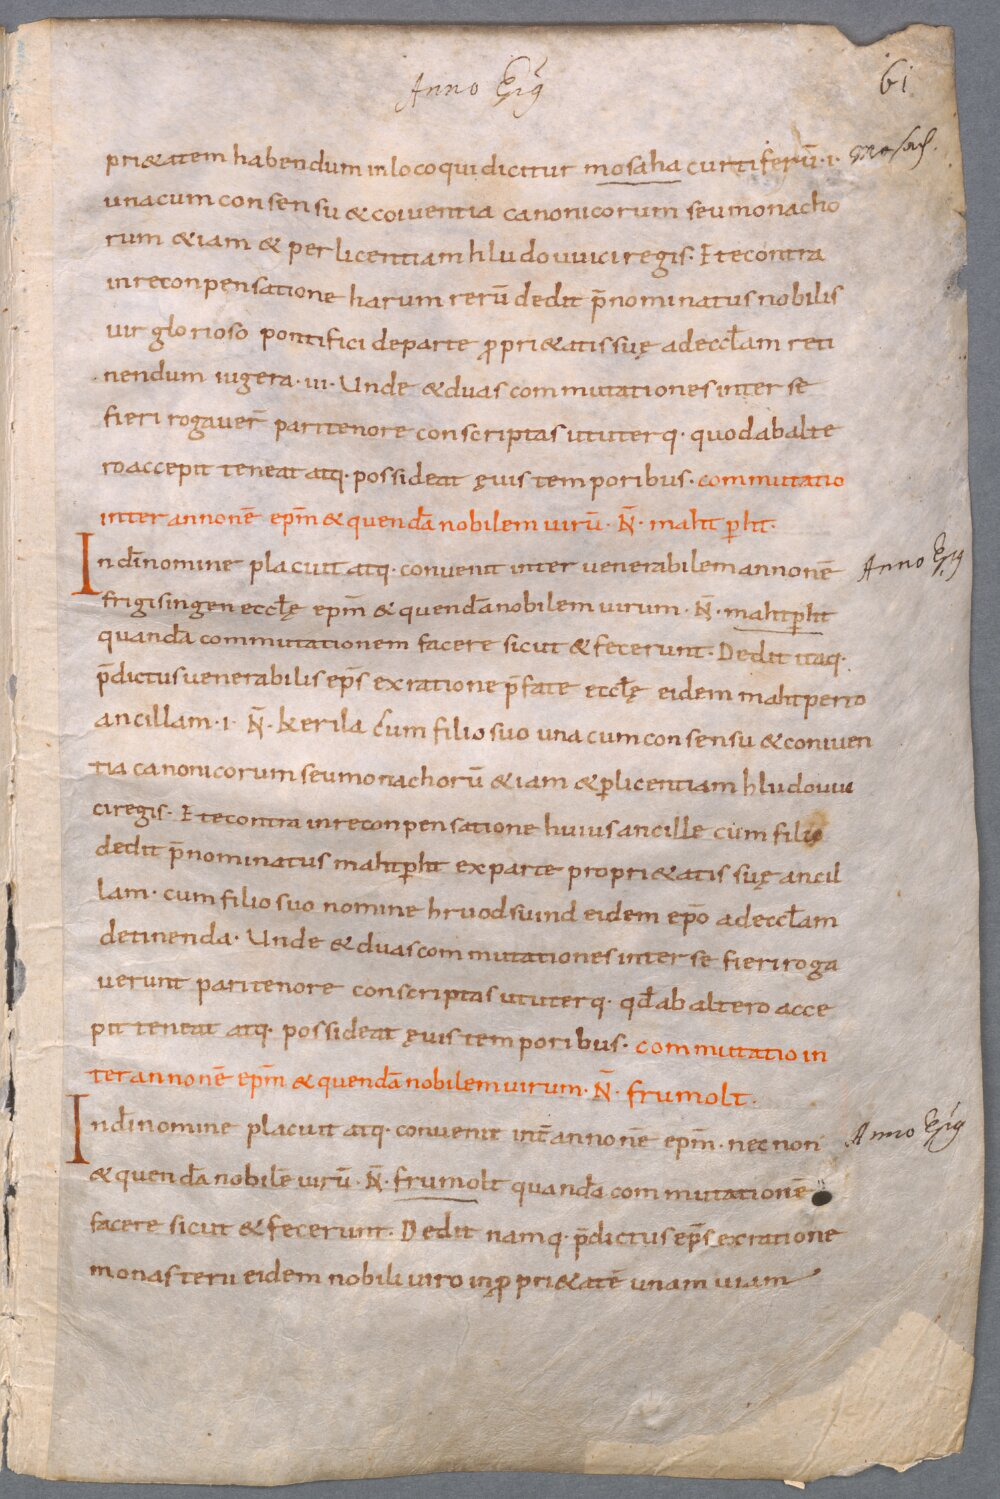 Anno Ep̃g
61
pri&atem habendum inloco qui dicitur mosaha curtiferū·i· Mosach.
unacum consensu & coiventia canonicorum seu monacho
rum &iam & per licentiam hludouuici regis· E tecontra
inreconpensatione harum rerū dedit p̄nominatus nobilis
uir glorioso pontifici departe ꝓpri&atis suę adeccłam reti
nendum iugera·iii· Unde & duas commutationes inter se
fieri rogauer̄ paritenore conscriptas ut uterq· quodabalte
ro accepit teneat atq· possideat ęuis temporibus· commutatio
inter annonē epm̄ & quendā nobilem uirū· N̄· mahtꝑht·
In dīnomine placuit atq· convenit inter venerabilem annonē Anno Ep̃g
frigisingen eccłę epm̄ & quendā nobilem uirum· N̄· mahtꝑht
quandā commutationem facere sicut & fecerunt· Dedit itaq·
p̄dictus venerabilis ep̄s exratione p̄fate eccłę eidem mahtperto
ancillam·i· N̄· kerila cum filio suo una cum consensu & coniuen
tia canonicorum seu monachorū &iam &ꝑlicentiam hludouui
ci regis· E tecontra inreconpensatione huius ancille cum filio
dedit p̄nominatus mahtꝑht ex parte propri&atis suę ancil
lam· cum filio suo nomine hruodsuind eidem ep̄o adeccłam
detinenda· Unde & duas commutationes inter se fieri roga
uerunt paritenore conscriptas ut uterq· qd̄ab altero acce
pit teneat atq· possideat ęuis temporibus· commutatio in
ter annonē epm̄ & quendā nobilem uirum· N̄· frumolt·
In dīnomine placuit atq· convenit int̄ annonē epm̄· nec non Anno Ep̃g
& quendā nobilē uirū· N̄· frumolt quandā commutationē
facere sicut & fecerunt· Dedit namq· p̄dictus ep̄s exratione
monasterii eidem nobili uiro inꝓpri&atē unam uiam